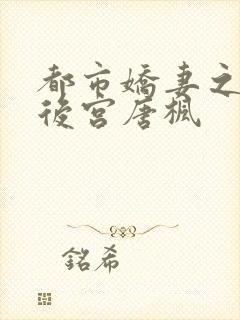 都市嬌妻之
後宮唐楓
銘希